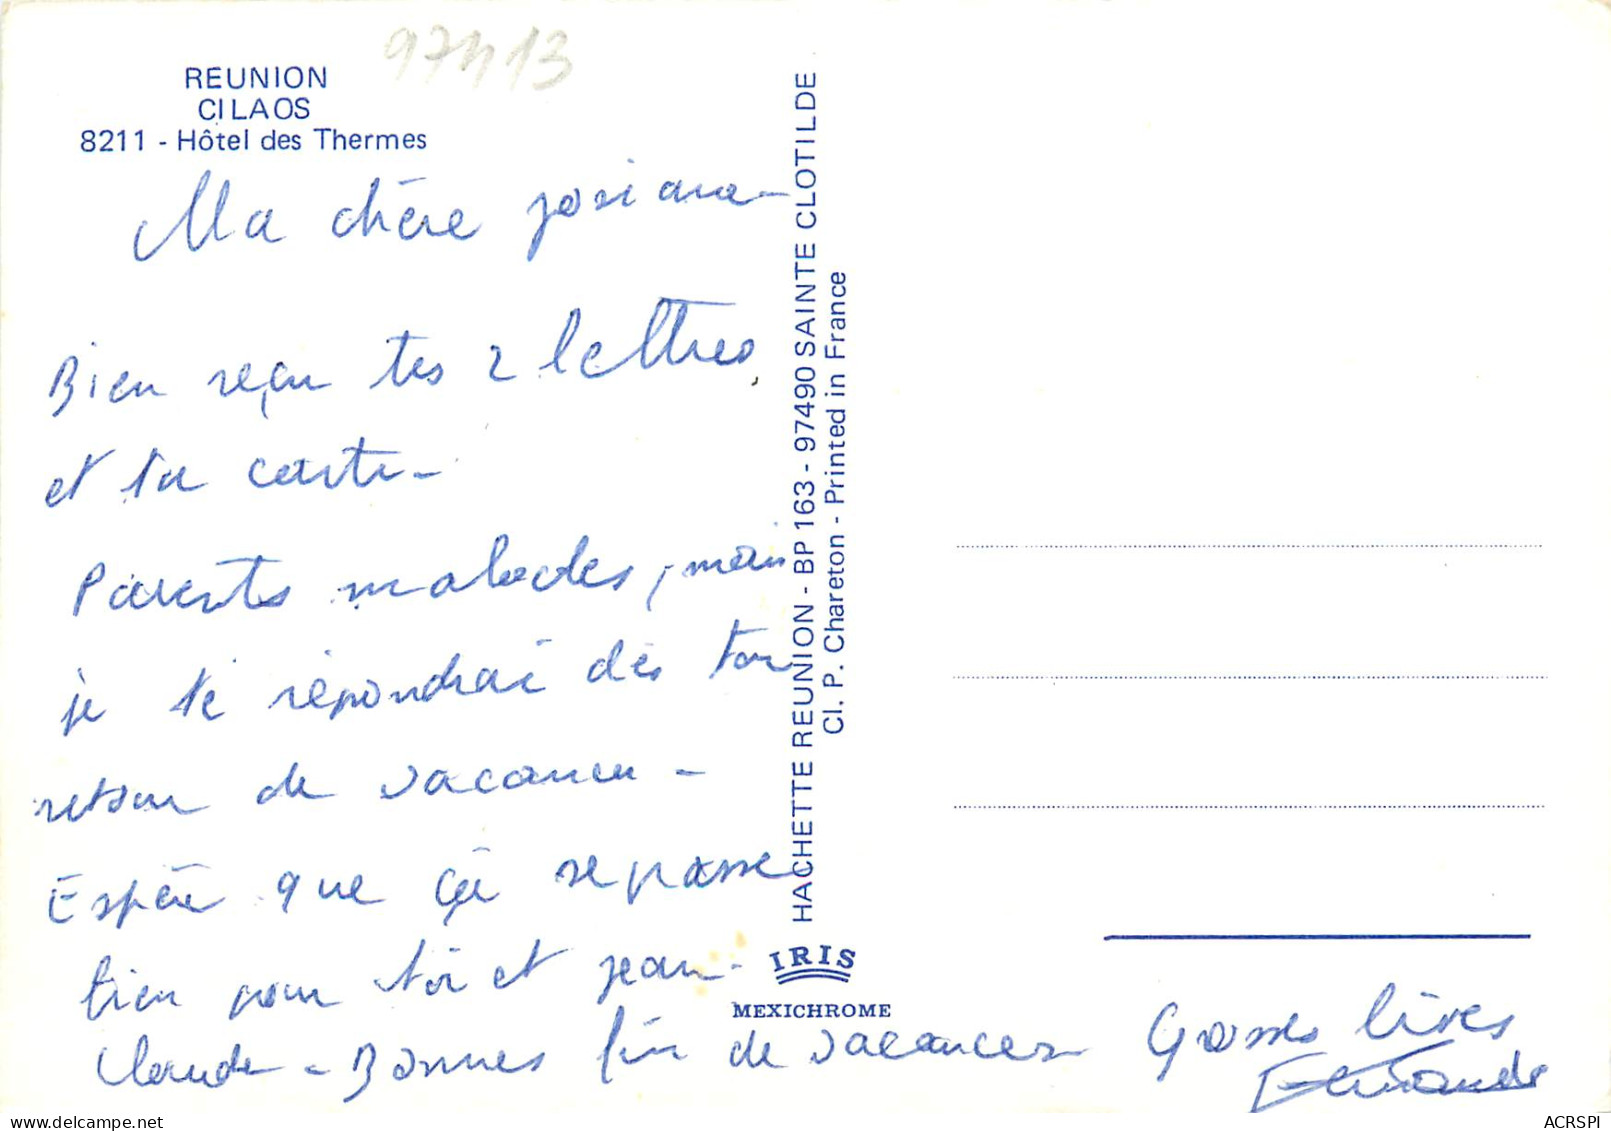 97413
REUNION
CILAOS
8211 - Hôtel des Thermes
Ma chère Josiane -
Bien reçu tes 2 lettres,
et ta carte -
Parents malades, mais
je te répondrai dès ton
retour de vacances -
Espère que ça se passe
bien pour toi et Jean-
Claude - Bonnes fin de vacances
Grosses bises
Fernande
HACHETTE REUNION - BP 163 - 97490 SAINTE CLOTILDE
Cl. P. Chareton - Printed in France
IRIS
MEXICHROME
ACRSPI